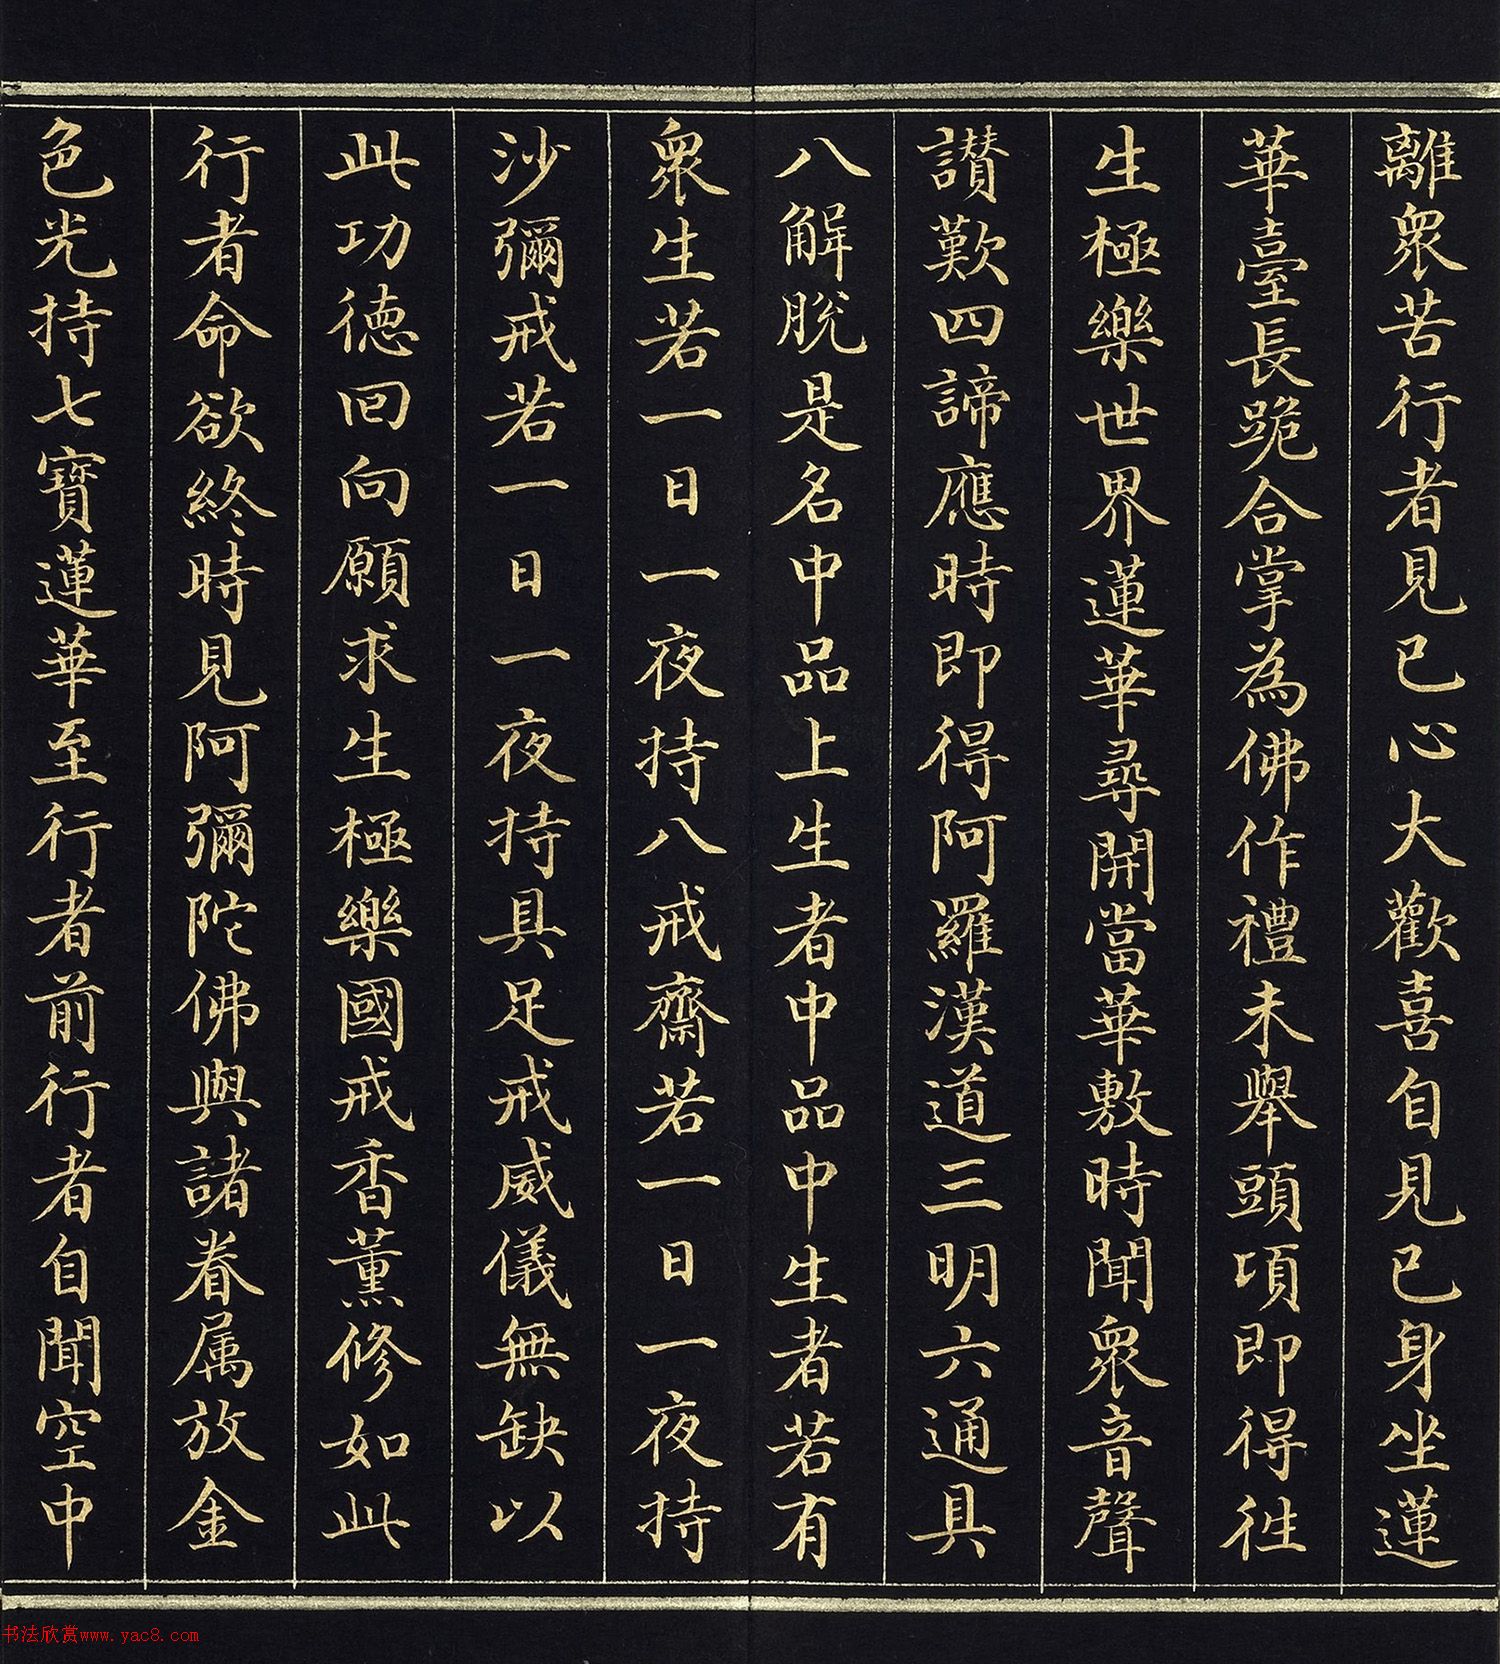 離衆苦行者見已心大歡喜自見已身坐蓮
華臺長跪合掌為佛作禮未舉頭項即得徃
生極樂世界蓮華尋開當華敷時聞衆音聲
讃歎四諦應時即得阿羅漢道三明六通具
八解脫是名中品上生者中品中生者若有
衆生若一日一夜持八戒齋若一日一夜持
沙彌戒若一日一夜持具足戒威儀無缺以
此功徳回向願求生極樂國戒香薰修如此
行者命欲終時見阿彌陀佛與諸眷属放金
色光持七寶蓮華至行者前行者自聞空中
书法欣赏www.yac8.com